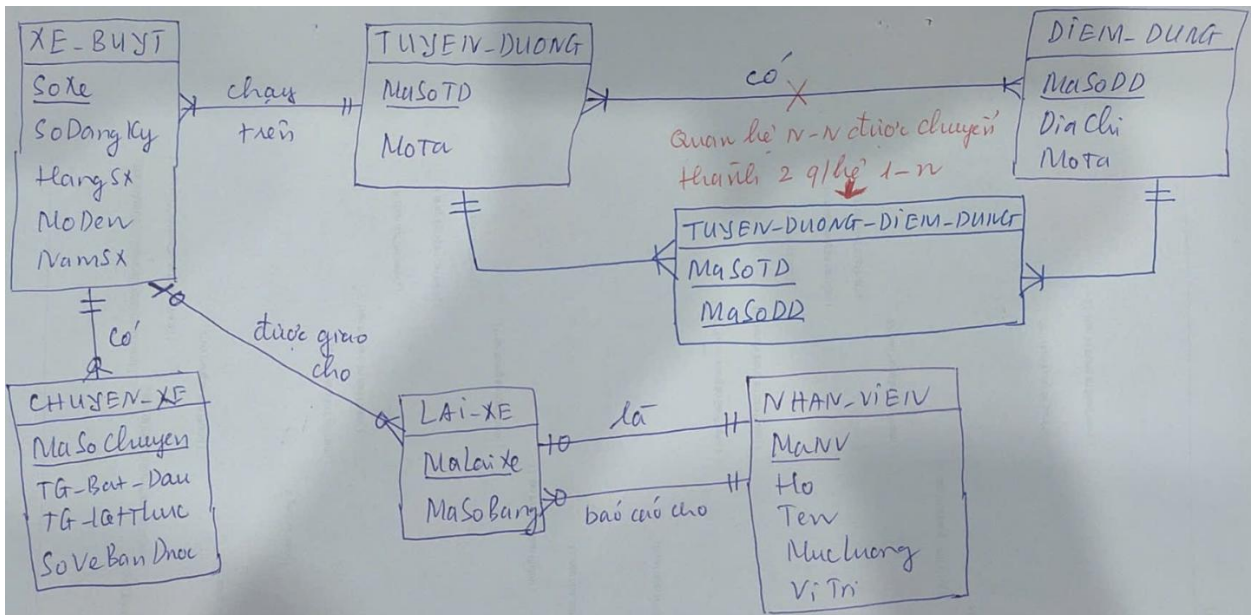 XE_BUYT
SoXe
SoDangKy
HangSX
MoDen
NamSX
chạy
trên
TUYEN_DUONG
MaSoTD
MoTa
có
Quan hệ N-N được chuyển
thành 2 q/hệ 1-n
DiEM_DUNG
MaSoDD
DiaChi
MoTa
TUYEN_DUONG_DiEM_DUNG
MaSoTD
MaSoDD
có
được giao
cho
CHUYEN_XE
MaSoChuyen
TG_Bat_Dau
TG_KetThuc
SoVeBanDuoc
LAi_XE
MaLaiXe
MaSoBang
là
báo cáo cho
NHAN_ViEN
MaNV
Ho
Ten
MucLuong
ViTri